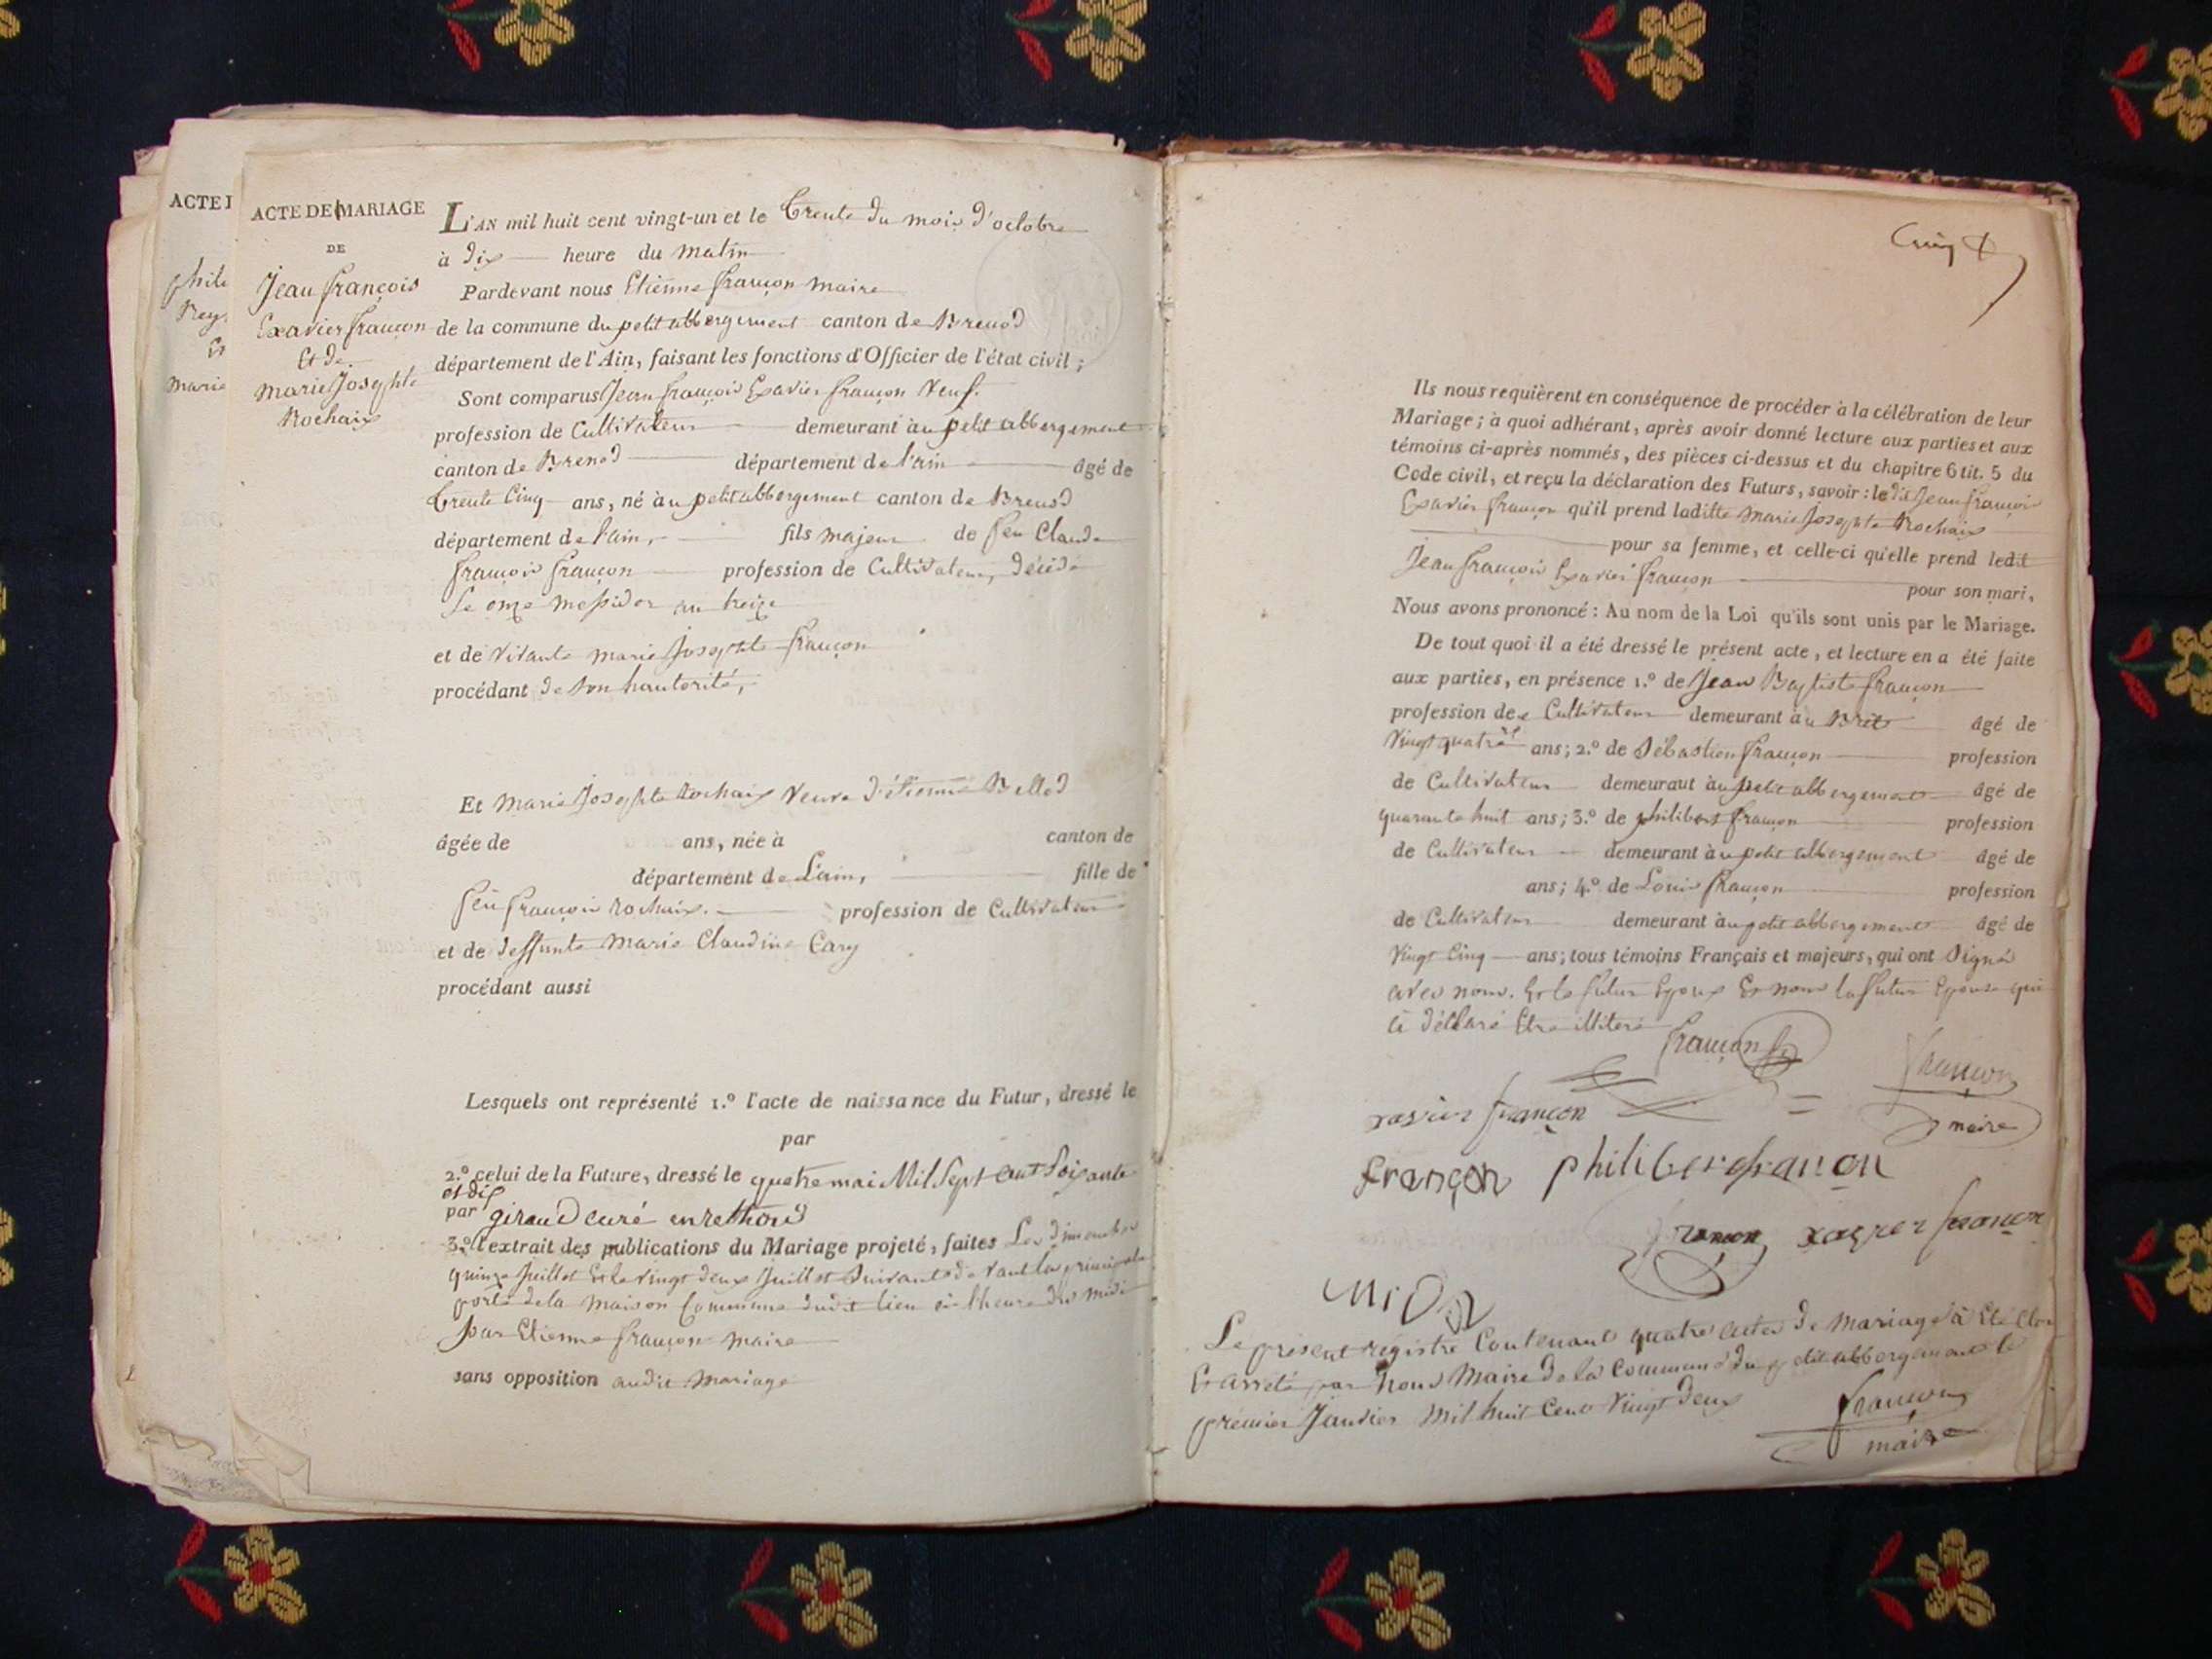 ACTE DE MARIAGE
DE
Jean françois
Exavier françon
Et de
marie Josephte
Rochaix
ACTE
phile
Rey
Et
marie
L'AN mil huit cent vingt-un et le trente du mois d'octobre
à dix heure du matin
Pardevant nous Etienne françon maire
de la commune du petit abbergement canton de Brenod
département de l'Ain, faisant les fonctions d'Officier de l'état civil;
Sont comparus Jean françois Exavier françon Veuf.
profession de Cultivateur demeurant à au petit abbergement
canton de Brenod département de l'ain âgé de
trente Cinq ans, né à au petit abbergement canton de Brenod
département de l'ain, fils majeur de feu Claude
françois françon profession de Cultivateur, décédé
Le onze messidor an treize
et de vivante marie Josephte françon
procédant de son hautorité,
Et marie Josephte Rochaix Veuve d'étienne Bellod
âgée de ans, née à canton de
département de L'ain, fille de
feu françois rochaix. profession de Cultivateur
et de deffunte marie Claudine Cary
procédant aussi
Lesquels ont représenté 1.º l'acte de naissance du Futur, dressé le
par
2.º celui de la Future, dressé le quatre mai Mil Sept cent Soixante
et dix
par giraud curé
3.º l'extrait des publications du Mariage projeté, faites Les dimenche
quinze Juillet Et le vingt deux Juillet Suivant devant la principale
porte de la maison Commune dudit lieu à l'heure de midi
par Etienne françon maire
sans opposition audit mariage
Ils nous requièrent en conséquence de procéder à la célébration de leur
Mariage; à quoi adhérant, après avoir donné lecture aux parties et aux
témoins ci-après nommés, des pièces ci-dessus et du chapitre 6 tit. 5 du
Code civil, et reçu la déclaration des Futurs, savoir: le dit Jean françois
Exavier françon qu'il prend laditte marie Josephte Rochaix
pour sa femme, et celle-ci qu'elle prend ledit
Jean françois Exavier françon pour son mari,
Nous avons prononcé: Au nom de la Loi qu'ils sont unis par le Mariage.
De tout quoi il a été dressé le présent acte, et lecture en a été faite
aux parties, en présence 1.º de Jean Baptiste françon
profession de Cultivateur demeurant à âgé de
Vingt quatre ans; 2.º de Sébastien françon profession
de Cultivateur demeurant à au petit abbergement âgé de
quarante huit ans; 3.º de philibert françon profession
de Cultivateur demeurant à au petit abbergement âgé de
ans; 4.º de Louis françon profession
de Cultivateur demeurant à au petit abbergement âgé de
Vingt Cinq ans; tous témoins Français et majeurs, qui ont Signé
avec nous. Et le futur Epoux Et non la future Epouse qui
a déclaré Etre illiteré
françon
françon
maire
xavier françon
françon philibert franson
françon xavier françon
Le présent registre Contenant quatre actes de mariage à Eté Clos
Et arreté par Nous Maire de la Commune du petit abbergement le
premier Janvier Mil huit Cent Vingt deux
françon
maire